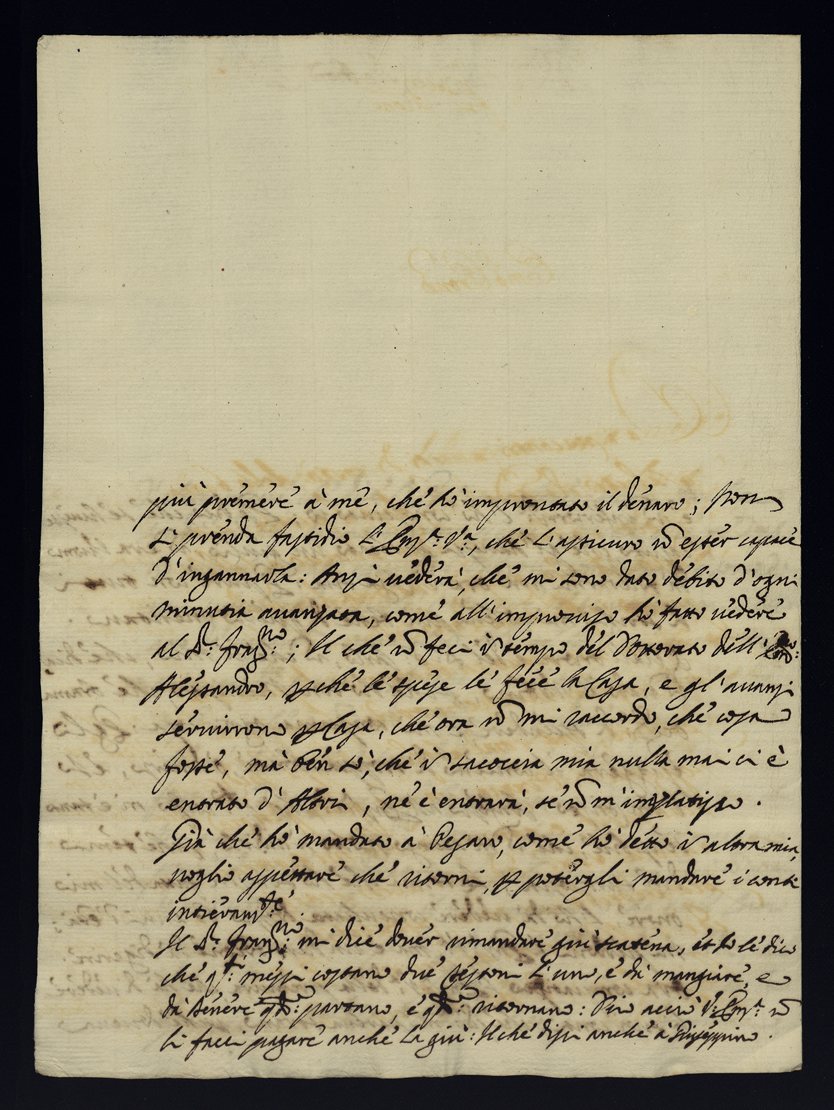 più premere à mè, che hò improntato il denaro; Non
si prenda fastidio V. Em.ª, che l'assicuro nõ esser capace
d'ingannarla: Anzi vederà, che mi sono dato debito d'ogni
minutia avanzata, come all'improviso hò fatto vedere
al Sr. Fran.co; Il che nõ feci in tempo del Dottorato dell'
Alessandro, p̱ che le spese le fece la Casa, e gl'avanzi
servirono p̱ Casa, che ora nõ mi raccordo, che cosa
fosse, mà ben sò, che in saccoccia mia nulla mai ci è
entrato d'Altri, nè c'entrarà, se nõ m'
Già che hò mandato à Pesaro, come hò detto in altra mia,
voglio aspettare che ritorni, p̱ potergli mandare i conti
intieram.te
Il Sr. Fran.co mi dice dover rimandare giù, et Io le dico
che q.ti messi costano due testoni l'uno, e dà mangiare, e
dà bevere q.do partano, e q.do ritornano: Sì acciò V. Em.ª nõ
li facci pagare anche là giù: Il che dissi anche à Giuseppino.